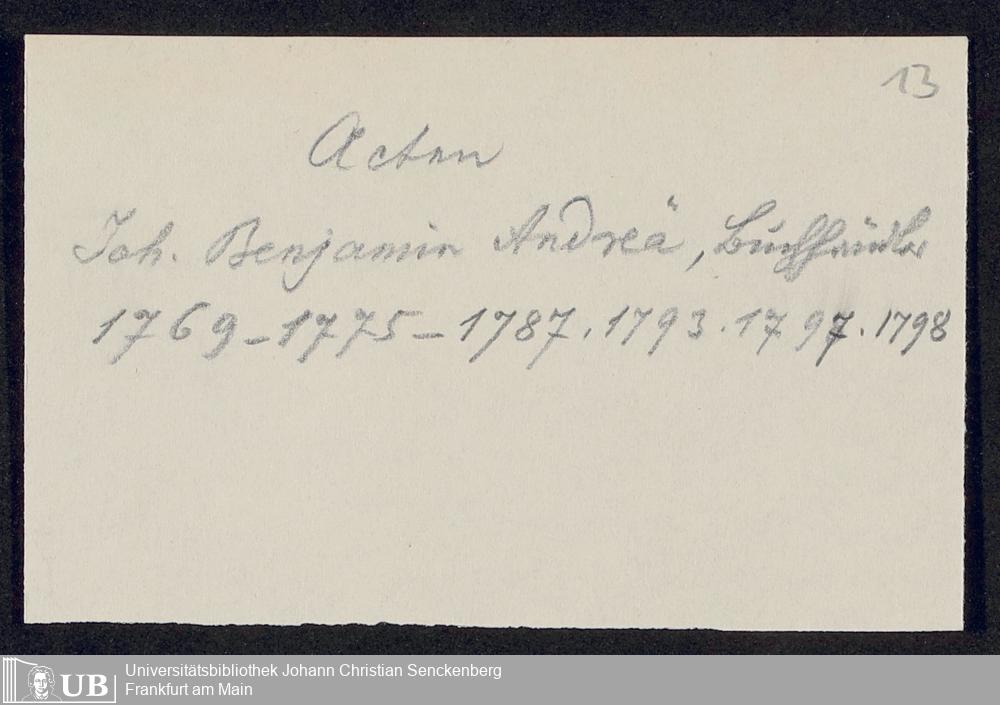 13
Acten
Joh. Benjamin Andreä, Buchhändler
1769 – 1775 – 1787. 1793. 1797. 1798
UB
Universitätsbibliothek Johann Christian Senckenberg
Frankfurt am Main